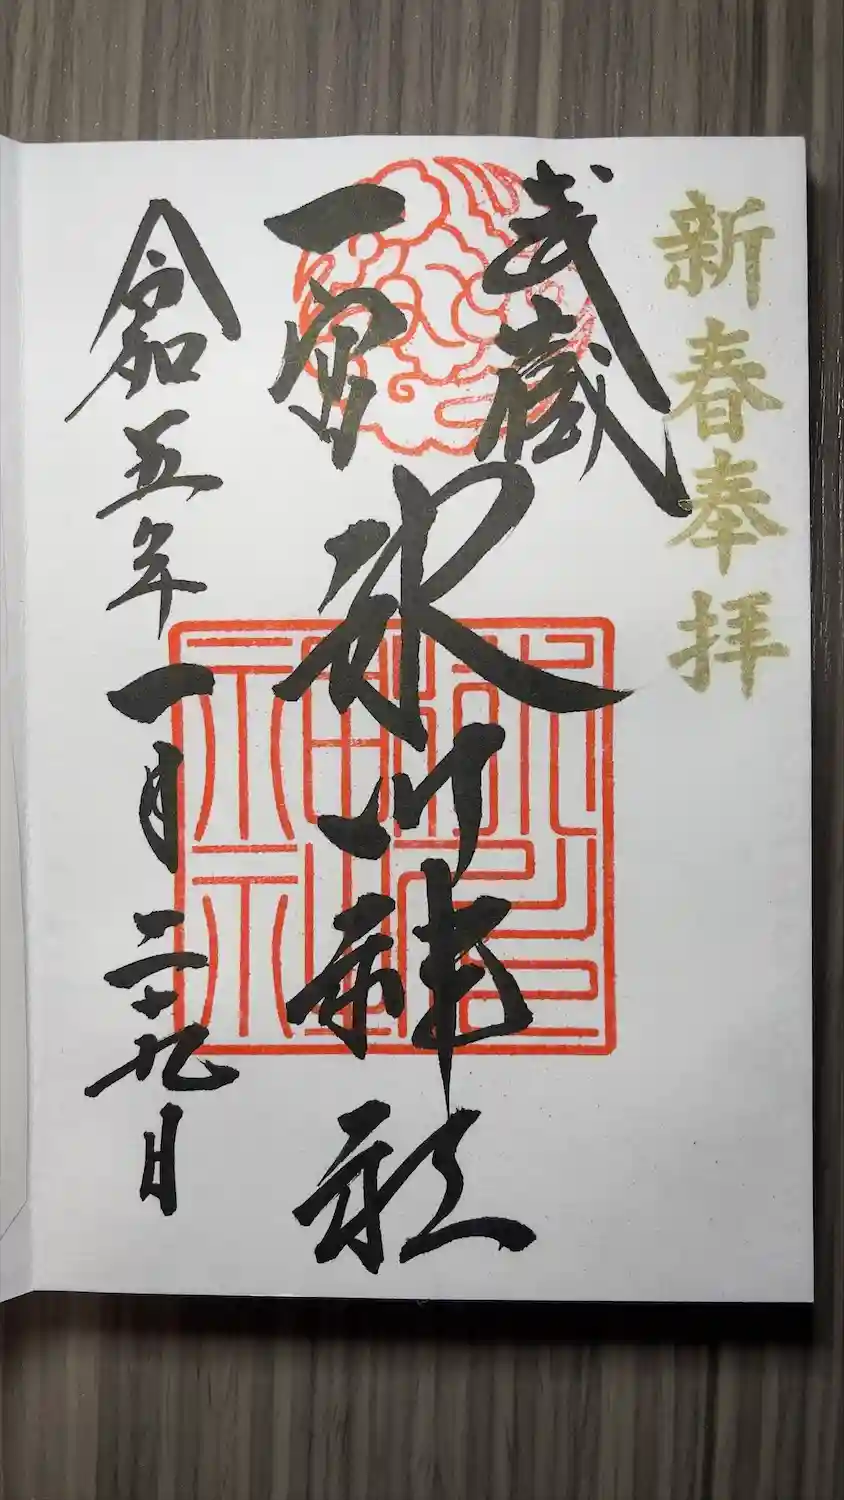 新春奉拝
武蔵
一宮
氷川神社
令和五年一月二十九日
氷川神社